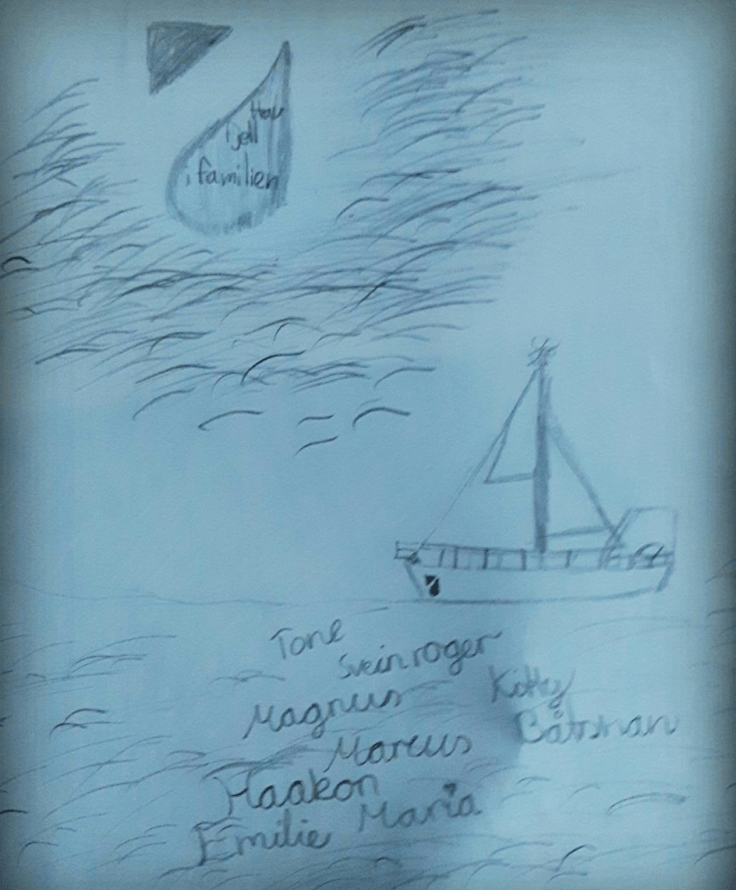 Hav
Dell
i familien
Tone
Sveinroger
Magnus Kitty
Marcus Båtsman
Haakon
Emilie Maria